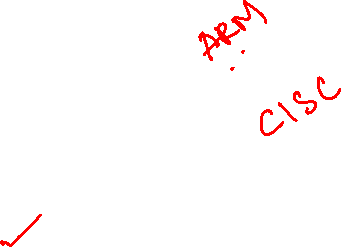 ARM
CISC